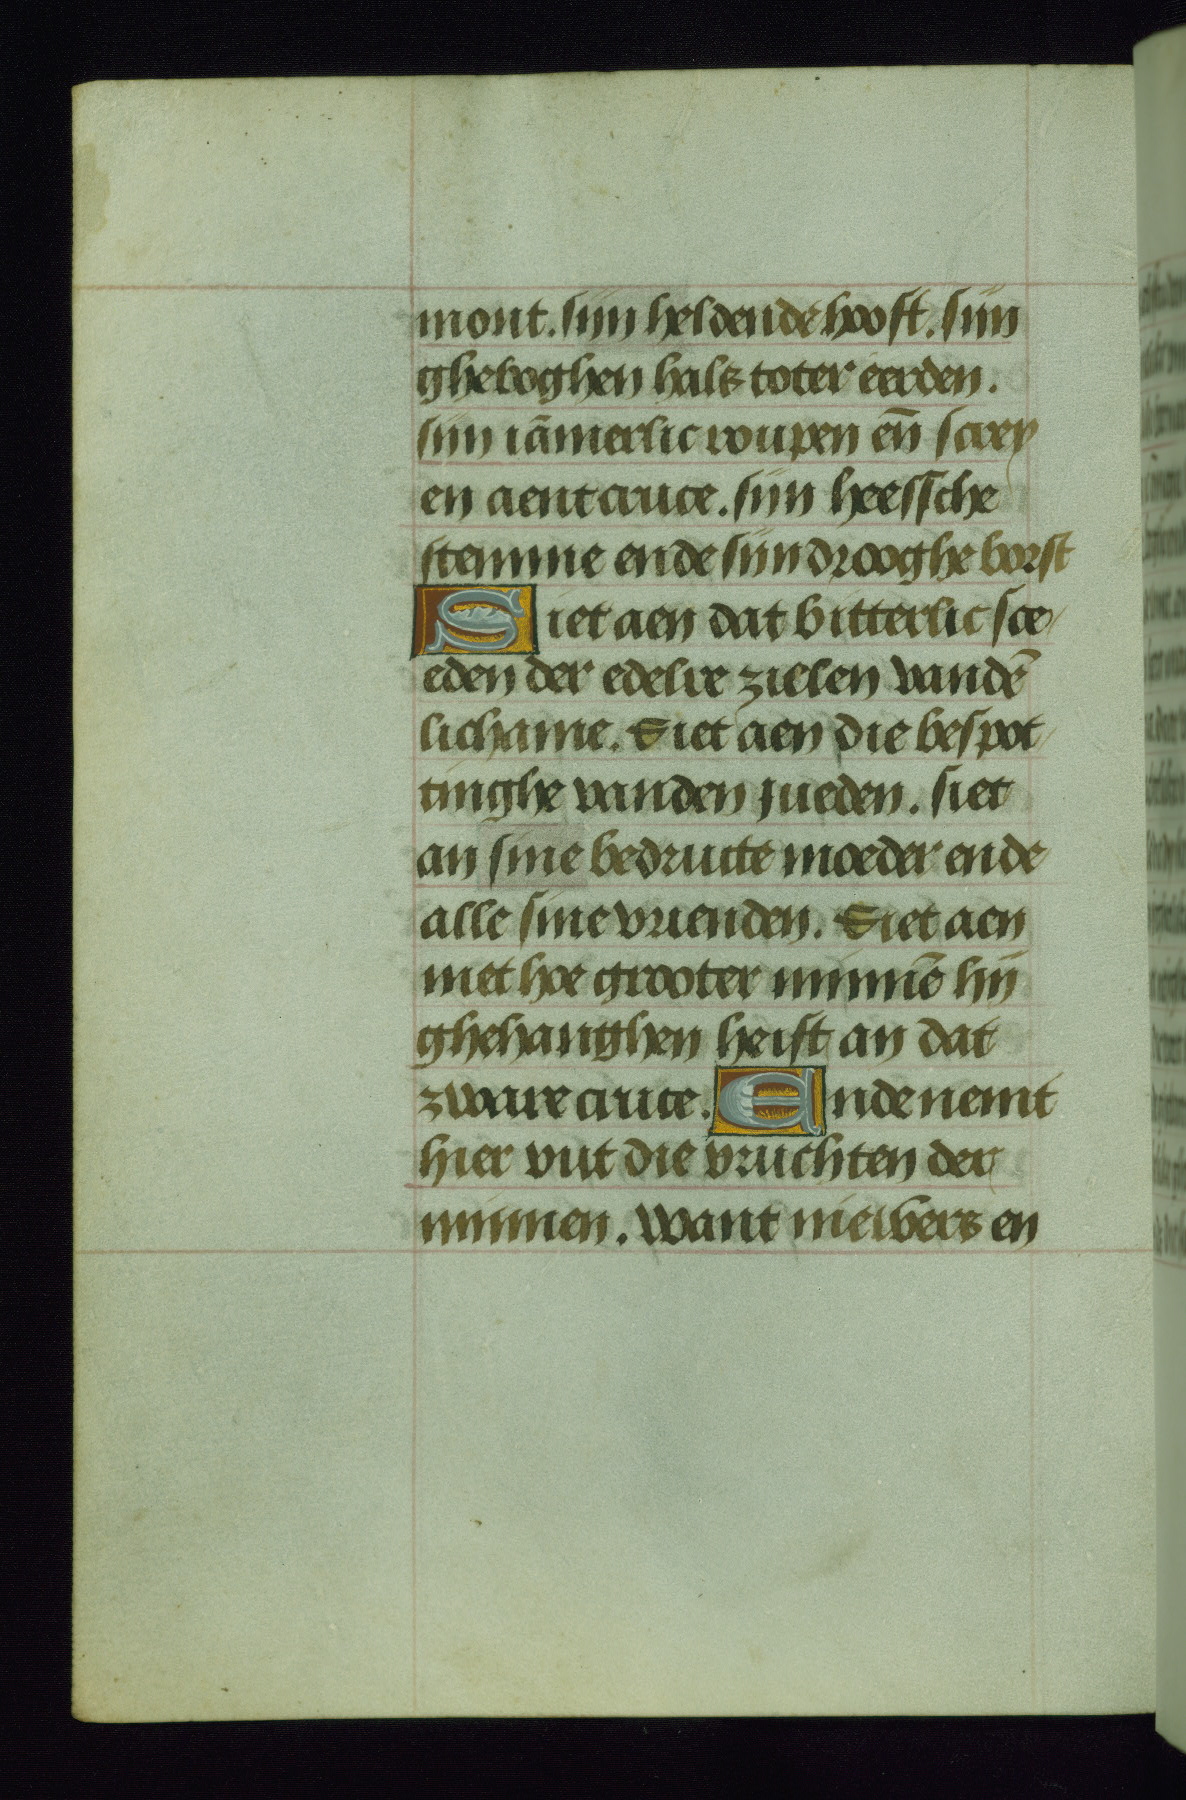 mont. sijn heldende hooft. sijn
gheboghen hals toter eerden.
sijn iāmerlic roupen en̄ screy
en aent cruce. sijn heessche
stemme ende sijn drooghe borst
Siet aen dat bitterlic sce/
eden der edelre zielen vandē
lichame. Siet aen die bespot/
tinghe vanden jueden. siet
an sine bedructe moeder ende
alle sine vrienden. Siet aen
met hoe grooter minnē hij
ghehanghen heift an dat
zware cruce. Ende nemt
hier vut die vruchten der
minnen. Want niewers en